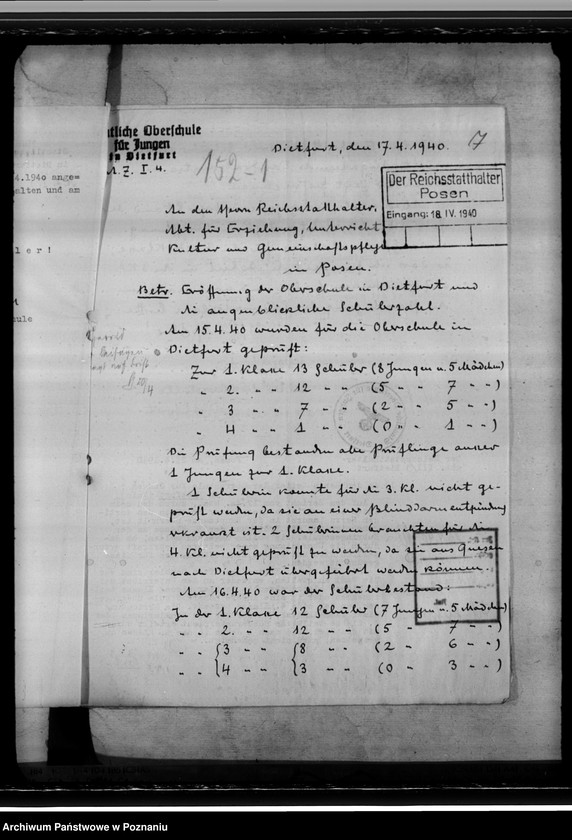 4.1940 ange=
alten und am
ler!
ule
tliche Oberschule
für Jungen
in Dietfurt
Dietfurt, den 17.4.1940.
7
J. Z. I. 4.
152-1
Der Reichsstatthalter
Posen
Eingang: 18. IV. 1940
An den Herrn Reichsstatthalter,
Abt. für Erziehung, Unterricht,
Kultur und Gemeinschaftspflege
in Posen.
Betr. Eröffnung der Oberschule in Dietfurt und
die augenblickliche Schülerzahl.
Am 15.4.40 wurden für die Oberschule in
Dietfurt geprüft:
Zur 1. Klasse 13 Schüler (8 Jungen u. 5 Mädchen)
" 2. " " 12 " " (5 " " 7 " ")
" 3 " " 7 " " (2 " " 5 " ")
" 4 " " 1 " " (0 " " 1 " ")
Die Prüfung bestanden alle Prüflinge ausser
1 Jungen zur 1. Klasse.
1 Schülerin konnte für die 3. Kl. nicht ge-
prüft werden, da sie an einer Blinddarmentzündung
erkrankt ist. 2 Schülerinnen brauchten für die
4. Kl. nicht geprüft zu werden, da sie aus Gnesen
nach Dietfurt übergeführt werden können.
Am 16.4.40 war der Schülerbestand:
In der 1. Klasse 12 Schüler (7 Jungen u. 5 Mädchen)
" " 2. " " 12 " " (5 " 7 " ")
" " 3 " " 8 " " (2 " 6 " ")
" " 4 " " 3 " " (0 " 3 " ")
Archiwum Państwowe w Poznaniu